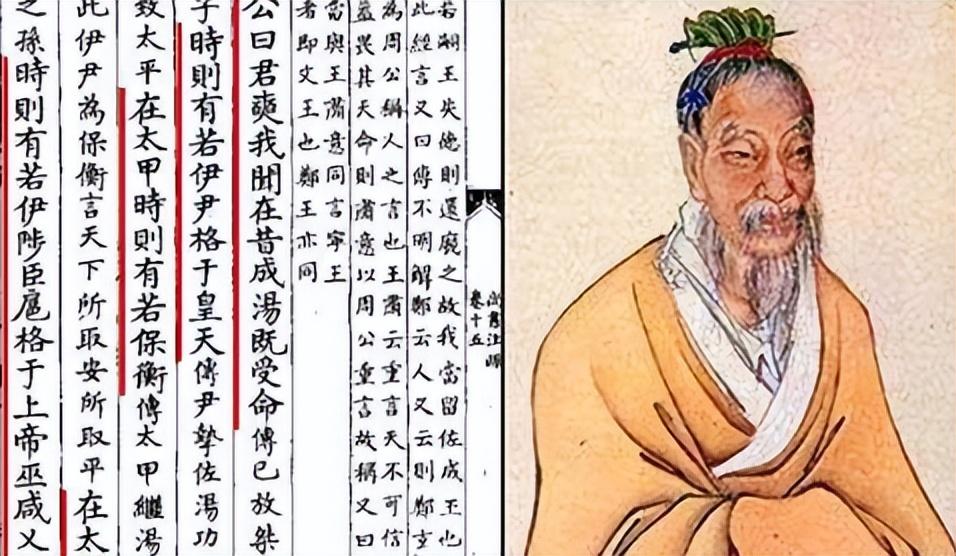 尚書注疏
卷十五
若嗣王失德則還廢之故我當留佐成王也
此經言又曰傳不明解鄭云人又云則鄭玄
為周公稱人之言也王肅云重言天不可信
益畏其天命則肅意以周公重言故稱又曰
當與王肅意同言寧王
者即文王也鄭王亦同
公曰君奭我聞在昔成湯既受命傳已放桀
子時則有若伊尹格于皇天傳尹摯佐湯功
致太平在太甲時則有若保衡傳太甲繼湯
此伊尹為保衡言天下所取安所取平在太
之孫時則有若伊陟臣扈格于上帝巫咸乂